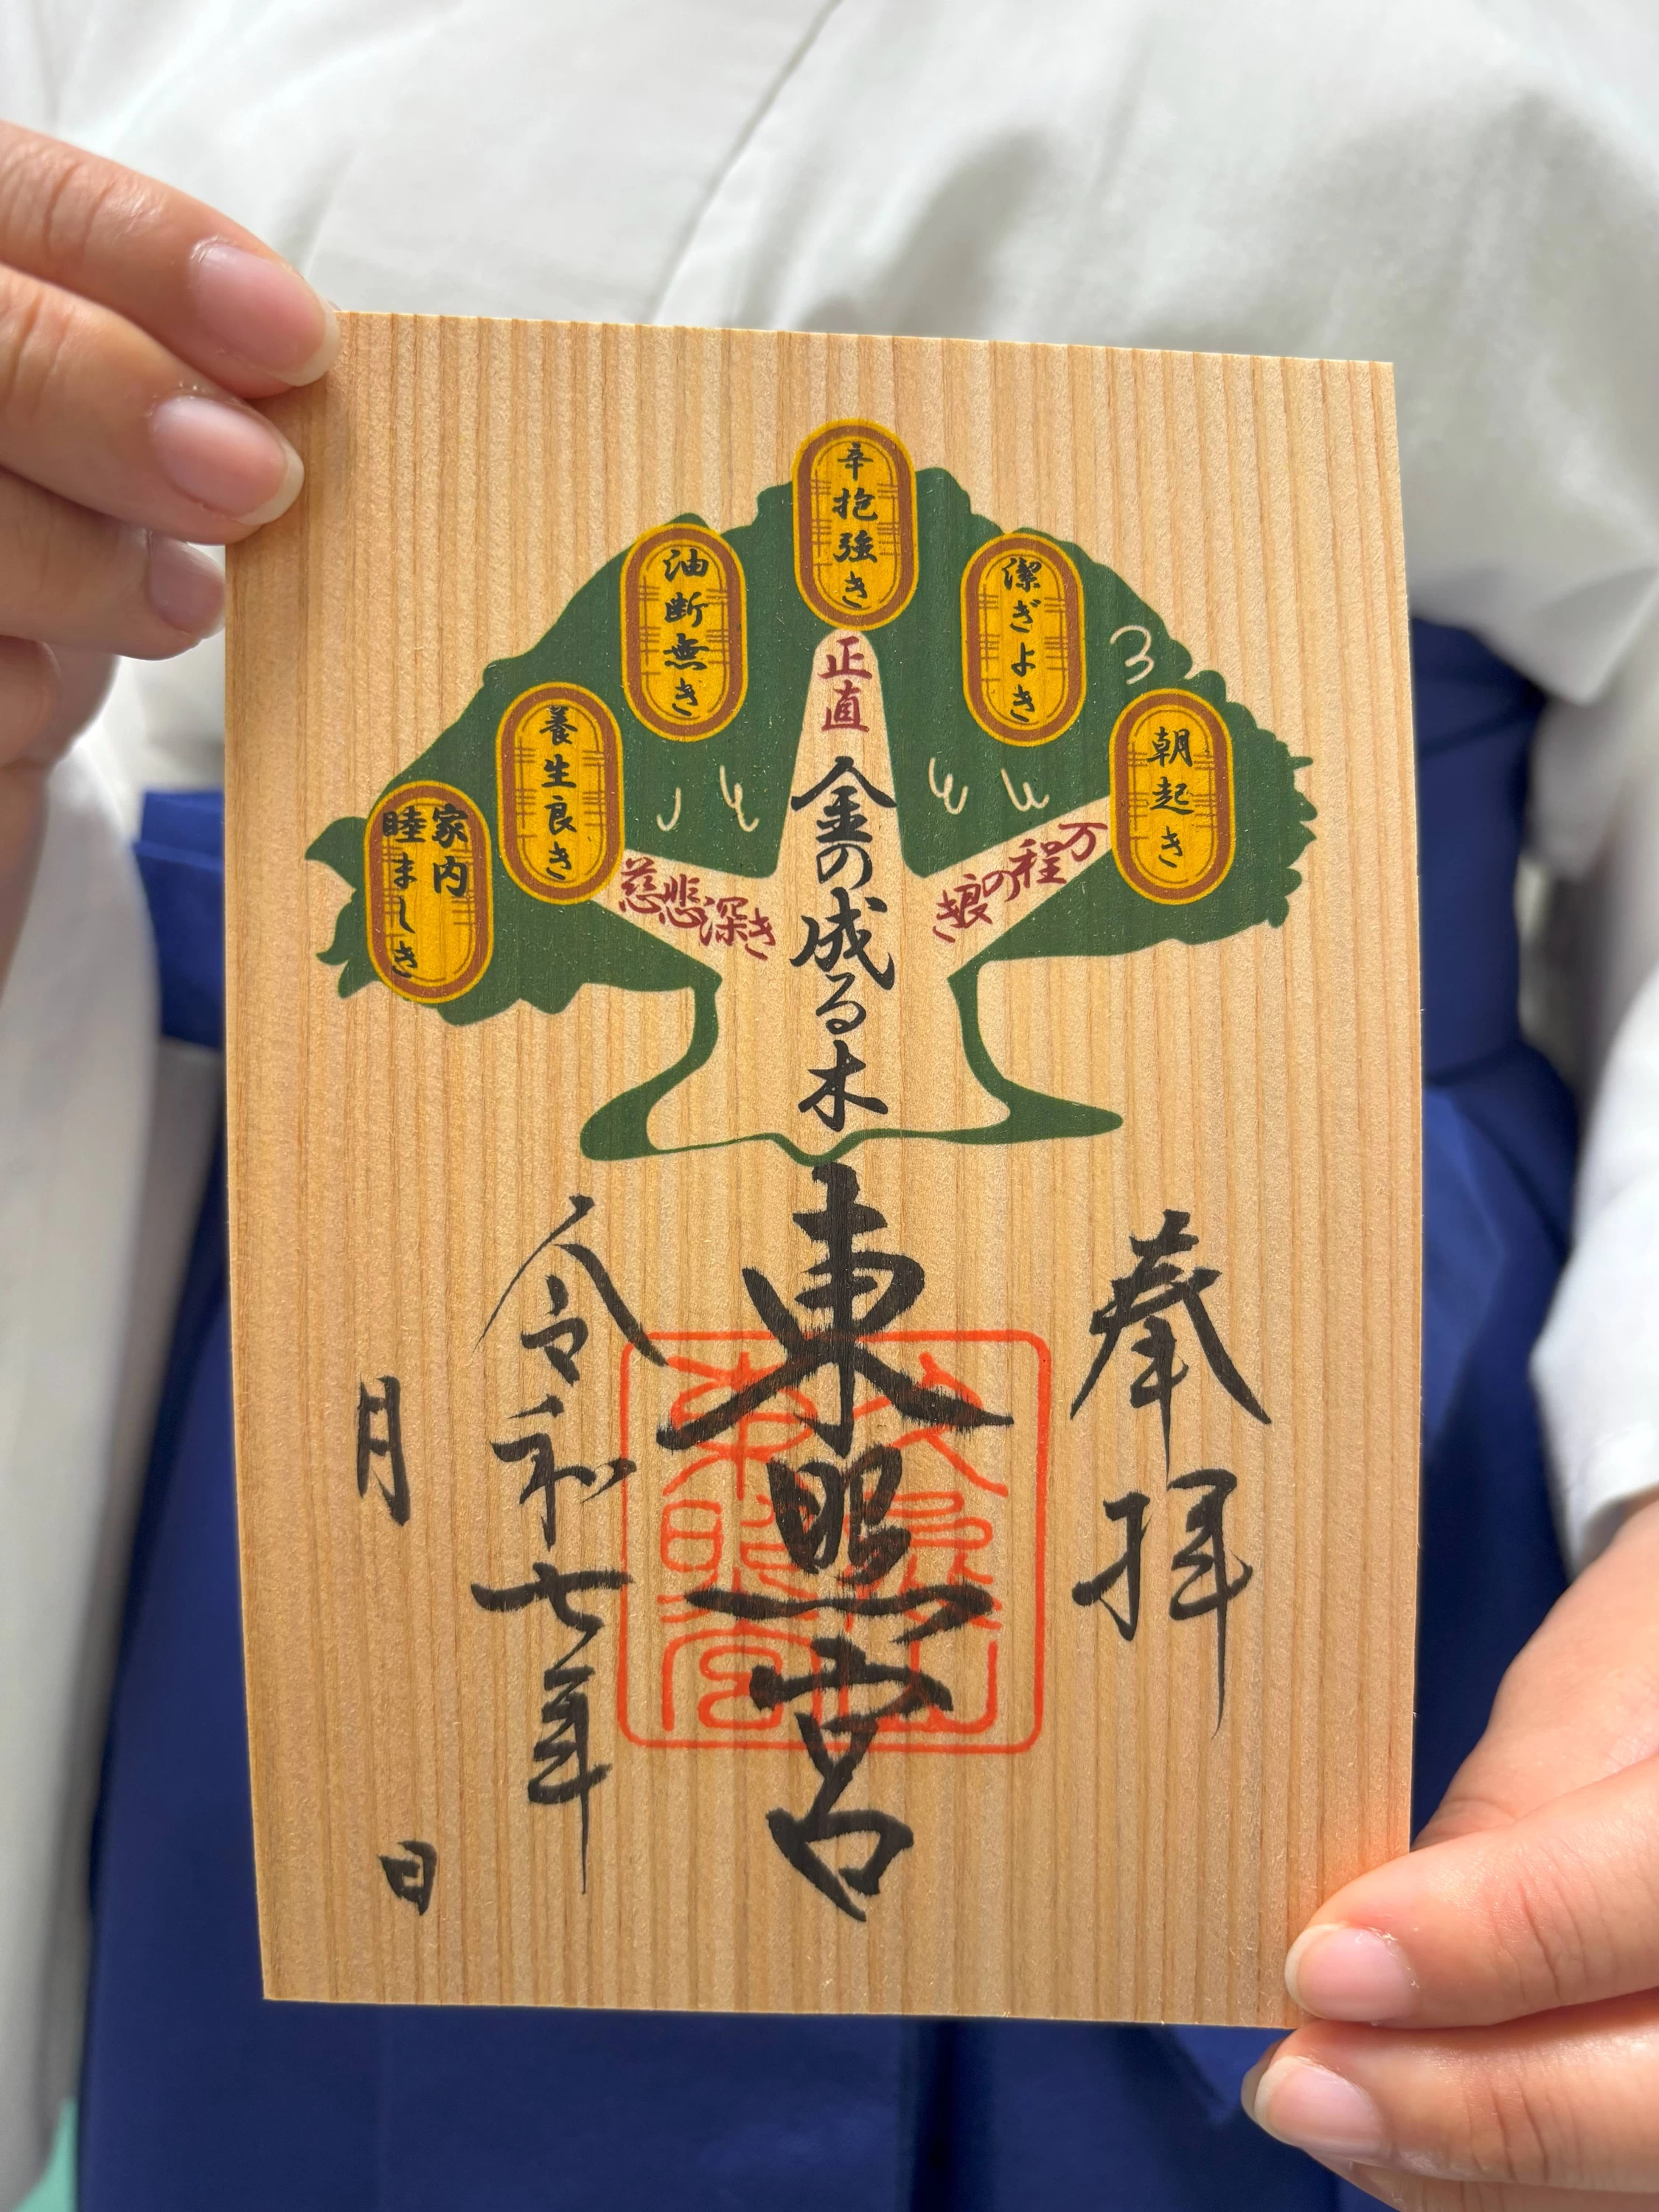 朝起き
潔ぎよき
辛抱強き
油断無き
養生良き
家内
睦ましき
万程の良き
正直
慈悲深き
金の成る木
奉拝
東照宮
久能山
東照宮
令和七年
月 日